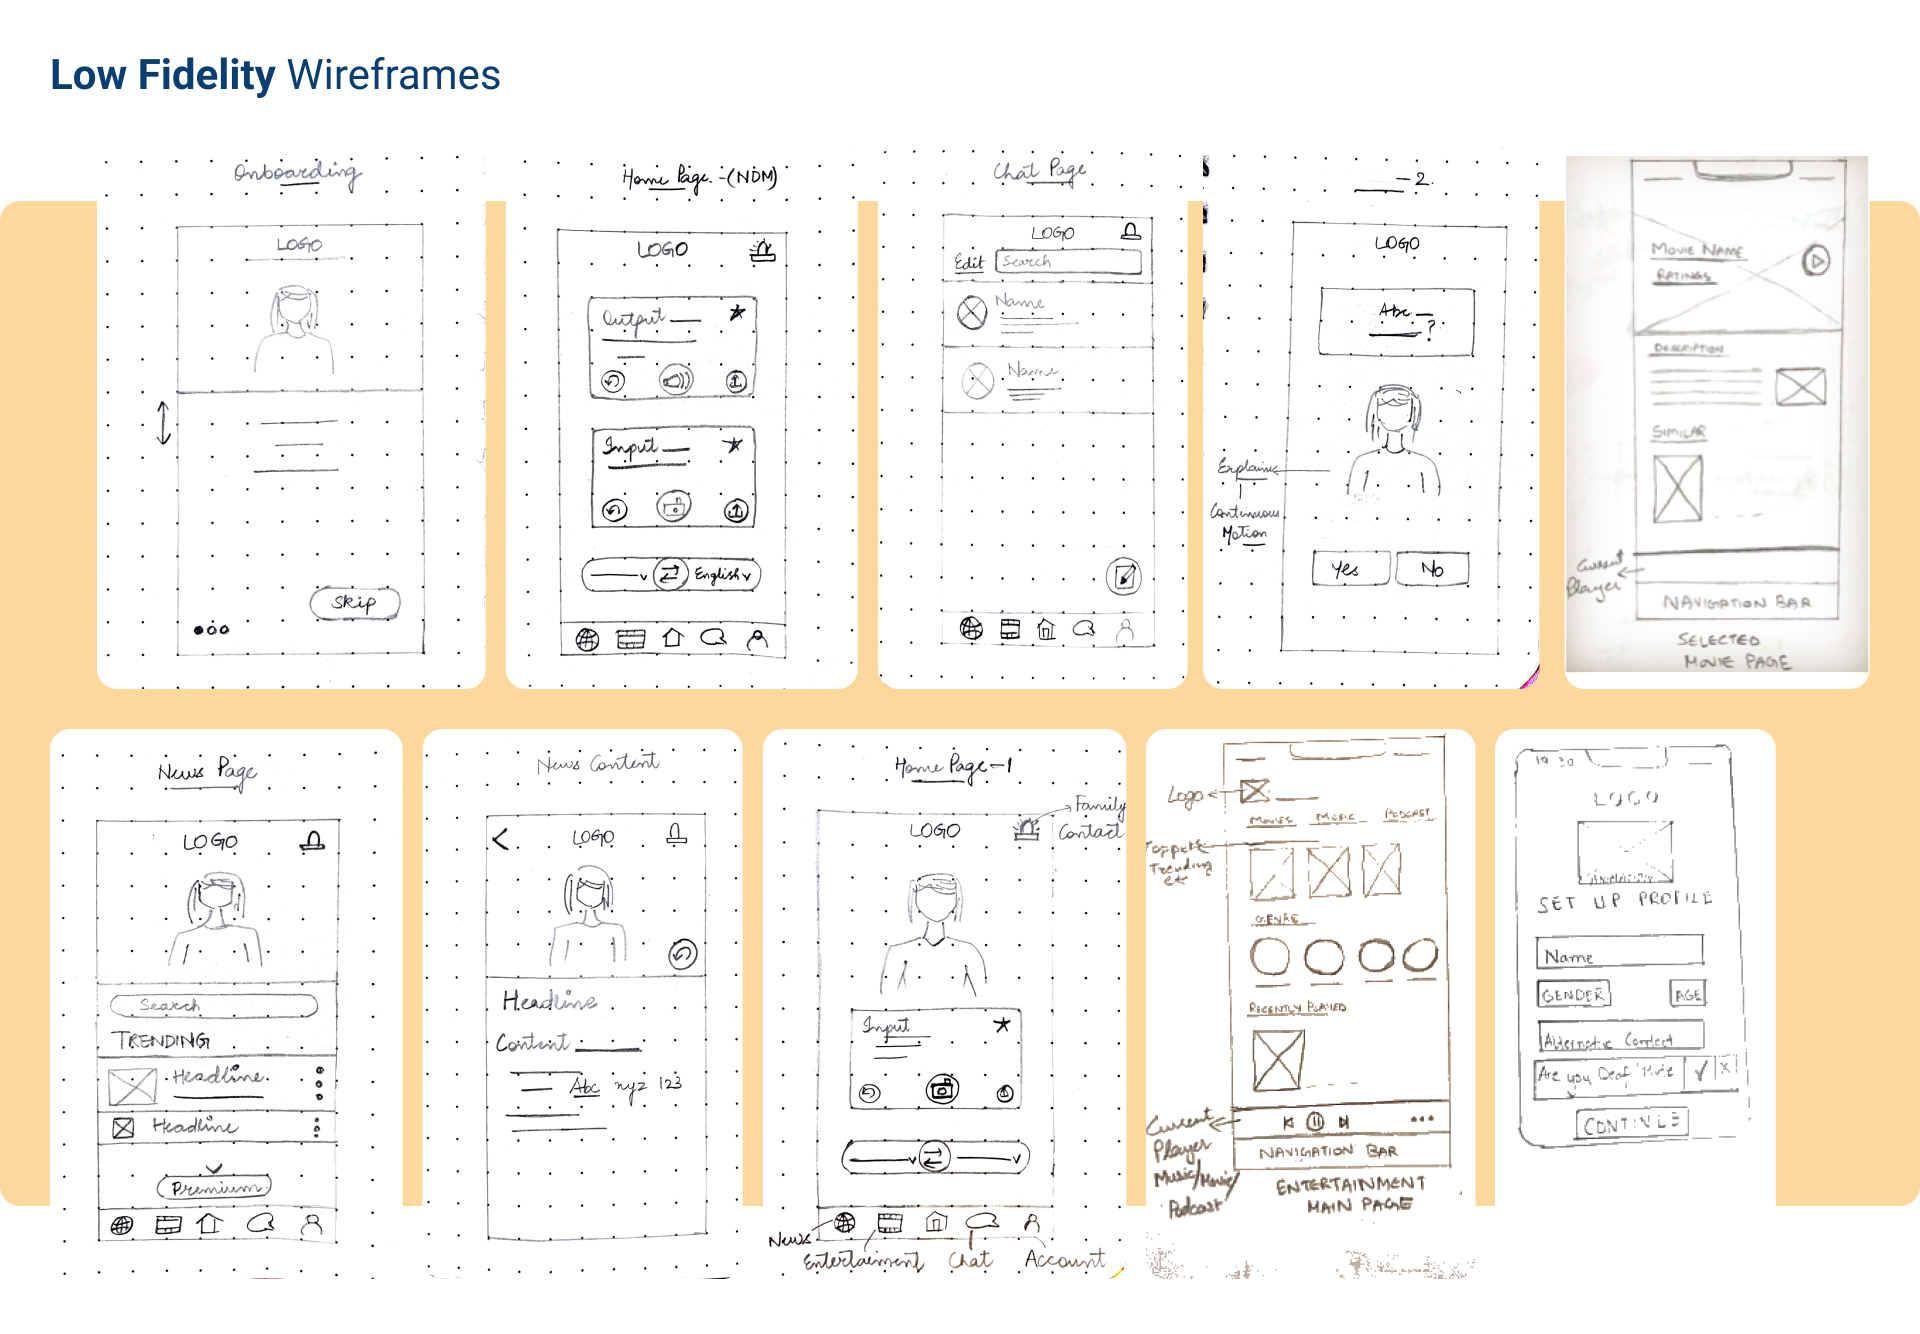 Low Fidelity Wireframes
Onboarding
LOGO
Skip
Home Page - (NDM)
LOGO
Output
Input
English
Chat Page
LOGO
Edit
Search
Name
Name
- 2
LOGO
Abc
?
Explains
Continuous
Motion
Yes
No
MOVIE NAME
RATINGS
DESCRIPTION
SIMILAR
Current
Player
NAVIGATION BAR
SELECTED
MOVIE PAGE
News Page
LOGO
Search
TRENDING
Headline
Headline
Premium
News Content
LOGO
Headline
Content
Abc xyz 123
Home Page - 1
Family
Contact
LOGO
Input
News
Entertainment
Chat
Account
Logo
MOVIES
MUSIC
PODCAST
Trending
etc
GENRE
RECENTLY PLAYED
Current
Player
Music/Movie/
Podcast
NAVIGATION BAR
ENTERTAINMENT
MAIN PAGE
19 30
LOGO
ANIMATION
SET UP PROFILE
Name
GENDER
AGE
Alternative Contact
Are you Deaf
CONTINUE